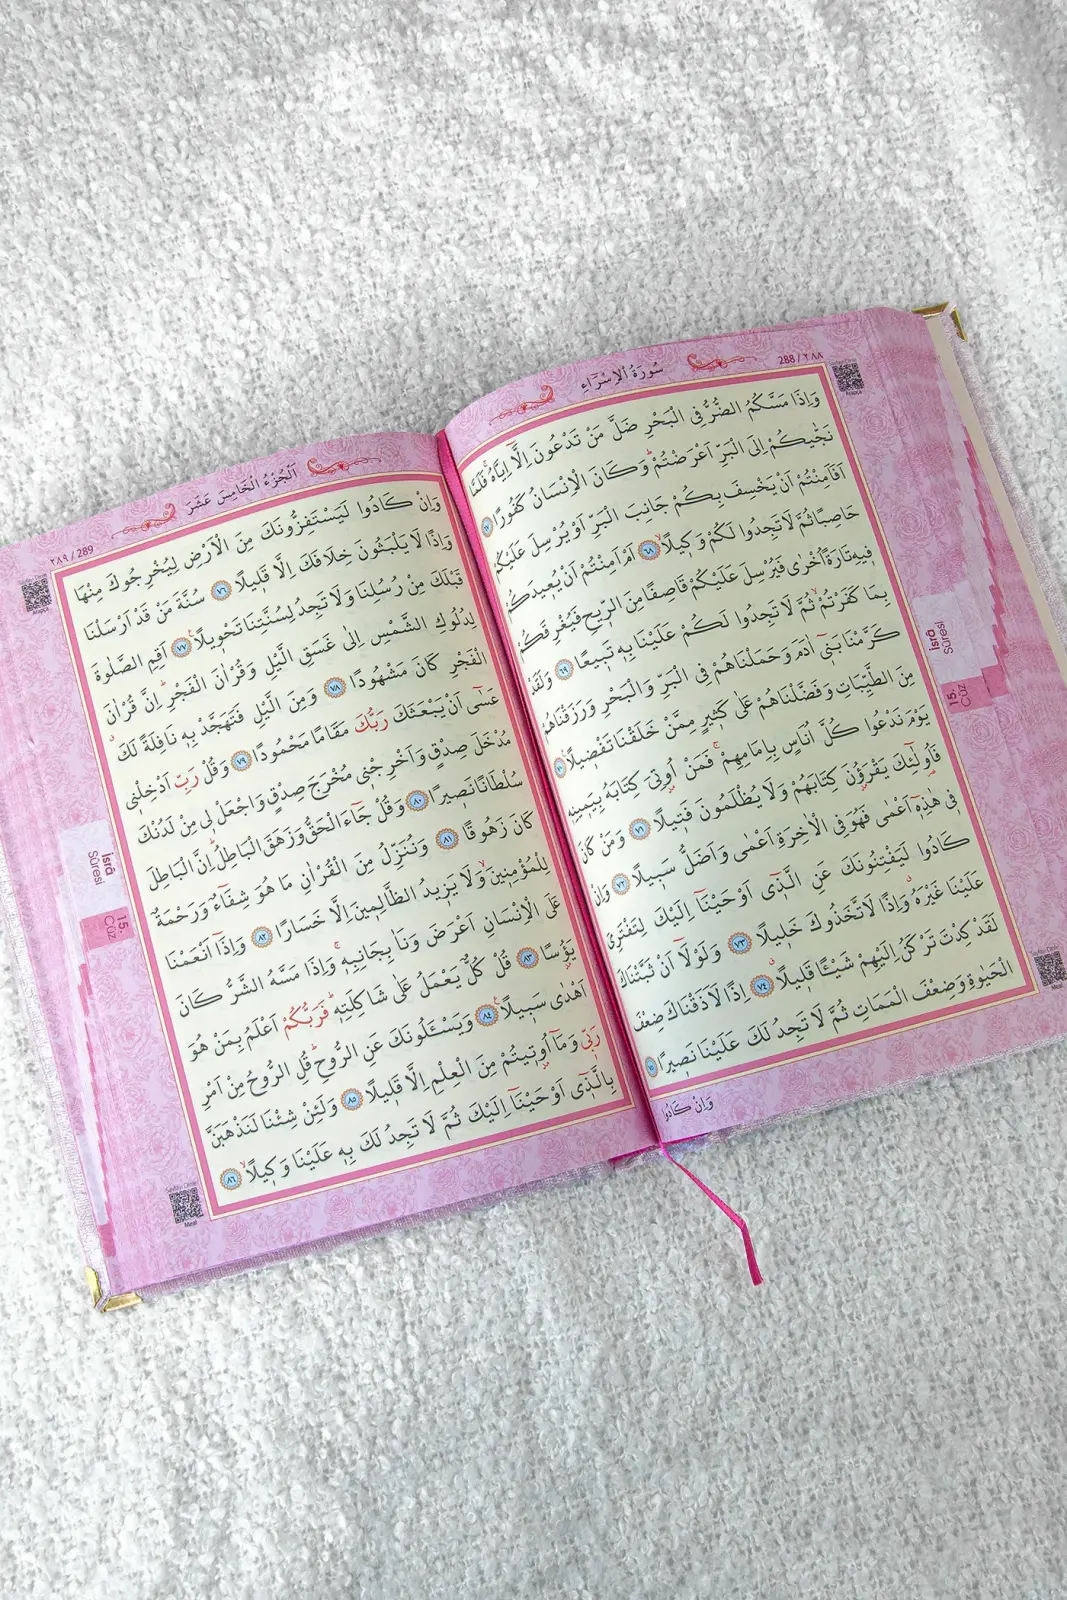 سُورَةُ الْاِسْرَاءِ
288 / ٢٨٨
وَاِذَا مَسَّكُمُ الضُّرُّ فِى الْبَحْرِ ضَلَّ مَنْ تَدْعُونَ اِلَّٓا اِيَّاهُۚ فَلَمَّا
نَجّٰيكُمْ اِلَى الْبَرِّ اَعْرَضْتُمْۜ وَكَانَ الْاِنْسَانُ كَفُورًا ﴿٦٧﴾
اَفَاَمِنْتُمْ اَنْ يَخْسِفَ بِكُمْ جَانِبَ الْبَرِّ اَوْ يُرْسِلَ عَلَيْكُمْ
حَاصِبًا ثُمَّ لَا تَجِدُوا لَكُمْ وَكٖيلًاۙ ﴿٦٨﴾ اَمْ اَمِنْتُمْ اَنْ يُعٖيدَكُمْ
فٖيهِ تَارَةً اُخْرٰى فَيُرْسِلَ عَلَيْكُمْ قَاصِفًا مِنَ الرّٖيحِ فَيُغْرِقَكُمْ
بِمَا كَفَرْتُمْۙ ثُمَّ لَا تَجِدُوا لَكُمْ عَلَيْنَا بِهٖ تَبٖيعًا ﴿٦٩﴾ وَلَقَدْ
كَرَّمْنَا بَنٖٓى اٰدَمَ وَحَمَلْنَاهُمْ فِى الْبَرِّ وَالْبَحْرِ وَرَزَقْنَاهُمْ
مِنَ الطَّيِّبَاتِ وَفَضَّلْنَاهُمْ عَلٰى كَثٖيرٍ مِمَّنْ خَلَقْنَا تَفْضٖيلًا ﴿٧٠﴾
يَوْمَ نَدْعُوا كُلَّ اُنَاسٍ بِاِمَامِهِمْۚ فَمَنْ اُو۫تِىَ كِتَابَهُ بِيَمٖينِهٖ
فَاُو۬لٰٓئِكَ يَقْرَؤُ۫نَ كِتَابَهُمْ وَلَا يُظْلَمُونَ فَتٖيلًا ﴿٧١﴾ وَمَنْ كَانَ
فٖى هٰذِهٖٓ اَعْمٰى فَهُوَ فِى الْاٰخِرَةِ اَعْمٰى وَاَضَلُّ سَبٖيلًا ﴿٧٢﴾ وَاِنْ
كَادُوا لَيَفْتِنُونَكَ عَنِ الَّذٖٓى اَوْحَيْنَٓا اِلَيْكَ لِتَفْتَرِىَ
عَلَيْنَا غَيْرَهُۗ وَاِذًا لَاتَّخَذُوكَ خَلٖيلًا ﴿٧٣﴾ وَلَوْلَٓا اَنْ ثَبَّتْنَاكَ
لَقَدْ كِدْتَ تَرْكَنُ اِلَيْهِمْ شَيْـًٔا قَلٖيلًاۗ ﴿٧٤﴾ اِذًا لَاَذَقْنَاكَ ضِعْفَ
الْحَيٰوةِ وَضِعْفَ الْمَمَاتِ ثُمَّ لَا تَجِدُ لَكَ عَلَيْنَا نَصٖيرًا ﴿٧٥﴾
وَاِنْ كَادُوا
İsrâ
Sûresi
15.
Cüz
Meal
اَلْجُزْءُ الْخَامِسَ عَشَرَ
٢٨٩ / 289
وَاِنْ كَادُوا لَيَسْتَفِزُّونَكَ مِنَ الْاَرْضِ لِيُخْرِجُوكَ مِنْهَا
وَاِذًا لَا يَلْبَثُونَ خِلَافَكَ اِلَّا قَلٖيلًا ﴿٧٦﴾ سُنَّةَ مَنْ قَدْ اَرْسَلْنَا
قَبْلَكَ مِنْ رُسُلِنَا وَلَا تَجِدُ لِسُنَّتِنَا تَحْوٖيلًا۟ ﴿٧٧﴾ اَقِمِ الصَّلٰوةَ
لِدُلُوكِ الشَّمْسِ اِلٰى غَسَقِ الَّيْلِ وَقُرْاٰنَ الْفَجْرِۜ اِنَّ قُرْاٰنَ
الْفَجْرِ كَانَ مَشْهُودًا ﴿٧٨﴾ وَمِنَ الَّيْلِ فَتَهَجَّدْ بِهٖ نَافِلَةً لَكَۗ
عَسٰٓى اَنْ يَبْعَثَكَ رَبُّكَ مَقَامًا مَحْمُودًا ﴿٧٩﴾ وَقُلْ رَبِّ اَدْخِلْنٖى
مُدْخَلَ صِدْقٍ وَاَخْرِجْنٖى مُخْرَجَ صِدْقٍ وَاجْعَلْ لٖى مِنْ لَدُنْكَ
سُلْطَانًا نَصٖيرًا ﴿٨٠﴾ وَقُلْ جَٓاءَ الْحَقُّ وَزَهَقَ الْبَاطِلُۜ اِنَّ الْبَاطِلَ
كَانَ زَهُوقًا ﴿٨١﴾ وَنُنَزِّلُ مِنَ الْقُرْاٰنِ مَا هُوَ شِفَٓاءٌ وَرَحْمَةٌ
لِلْمُؤْمِنٖينَۙ وَلَا يَزٖيدُ الظَّالِمٖينَ اِلَّا خَسَارًا ﴿٨٢﴾ وَاِذَٓا اَنْعَمْنَا
عَلَى الْاِنْسَانِ اَعْرَضَ وَنَاٰ بِجَانِبِهٖۚ وَاِذَا مَسَّهُ الشَّرُّ كَانَ
يَؤُ۫سًا ﴿٨٣﴾ قُلْ كُلٌّ يَعْمَلُ عَلٰى شَاكِلَتِهٖۜ فَرَبُّكُمْ اَعْلَمُ بِمَنْ هُوَ
اَهْدٰى سَبٖيلًا۟ ﴿٨٤﴾ وَيَسْـَٔلُونَكَ عَنِ الرُّوحِۜ قُلِ الرُّوحُ مِنْ اَمْرِ
رَبّٖى وَمَٓا اُو۫تٖيتُمْ مِنَ الْعِلْمِ اِلَّا قَلٖيلًا ﴿٨٥﴾ وَلَئِنْ شِئْنَا لَنَذْهَبَنَّ
بِالَّذٖٓى اَوْحَيْنَٓا اِلَيْكَ ثُمَّ لَا تَجِدُ لَكَ بِهٖ عَلَيْنَا وَكٖيلًاۙ ﴿٨٦﴾
İsrâ
Sûresi
15.
Cüz
Meal